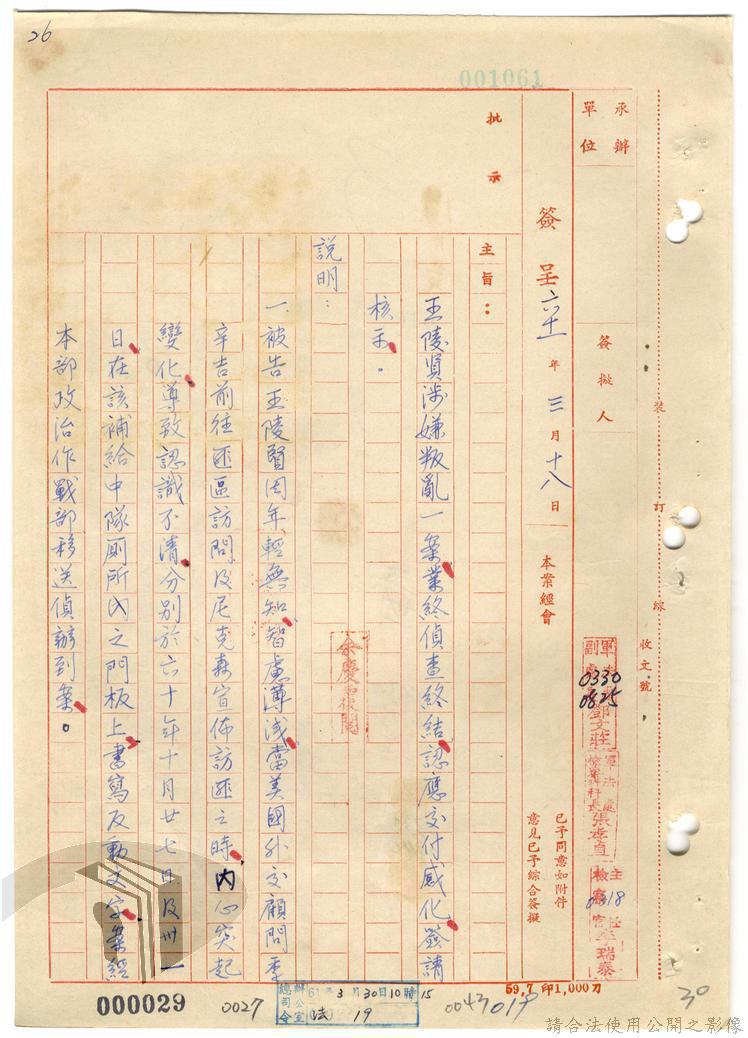 26
001061
承辦
單位
簽擬人
收文號
裝
訂
線
簽呈 六十一年三月十八日
本案經會
已予同意如附件
意見已予綜合簽擬
0330
0825
軍法處
張孝直
主任
檢察官
李瑞泰
0318
批示
主旨：
王陵賢涉嫌叛亂一案業終偵查終結認應交付感化簽請
核示。
余慶
說明：
一、被告王陵賢因年輕無知智慮薄淺當美國外交顧問季
辛吉前往匪區訪問及尼克森宣佈訪匪之時內心突起
變化導致認識不清分別於六十年十月廿七日及卅一
日在該補給中隊厠所內之門板上書寫反動文字案經
本部政治作戰部移送偵辦到案。
59.7印1,000刀
000029
0027
總司令
辦公室
61年3月30日10時15
法 19
30
請合法使用公開之影像